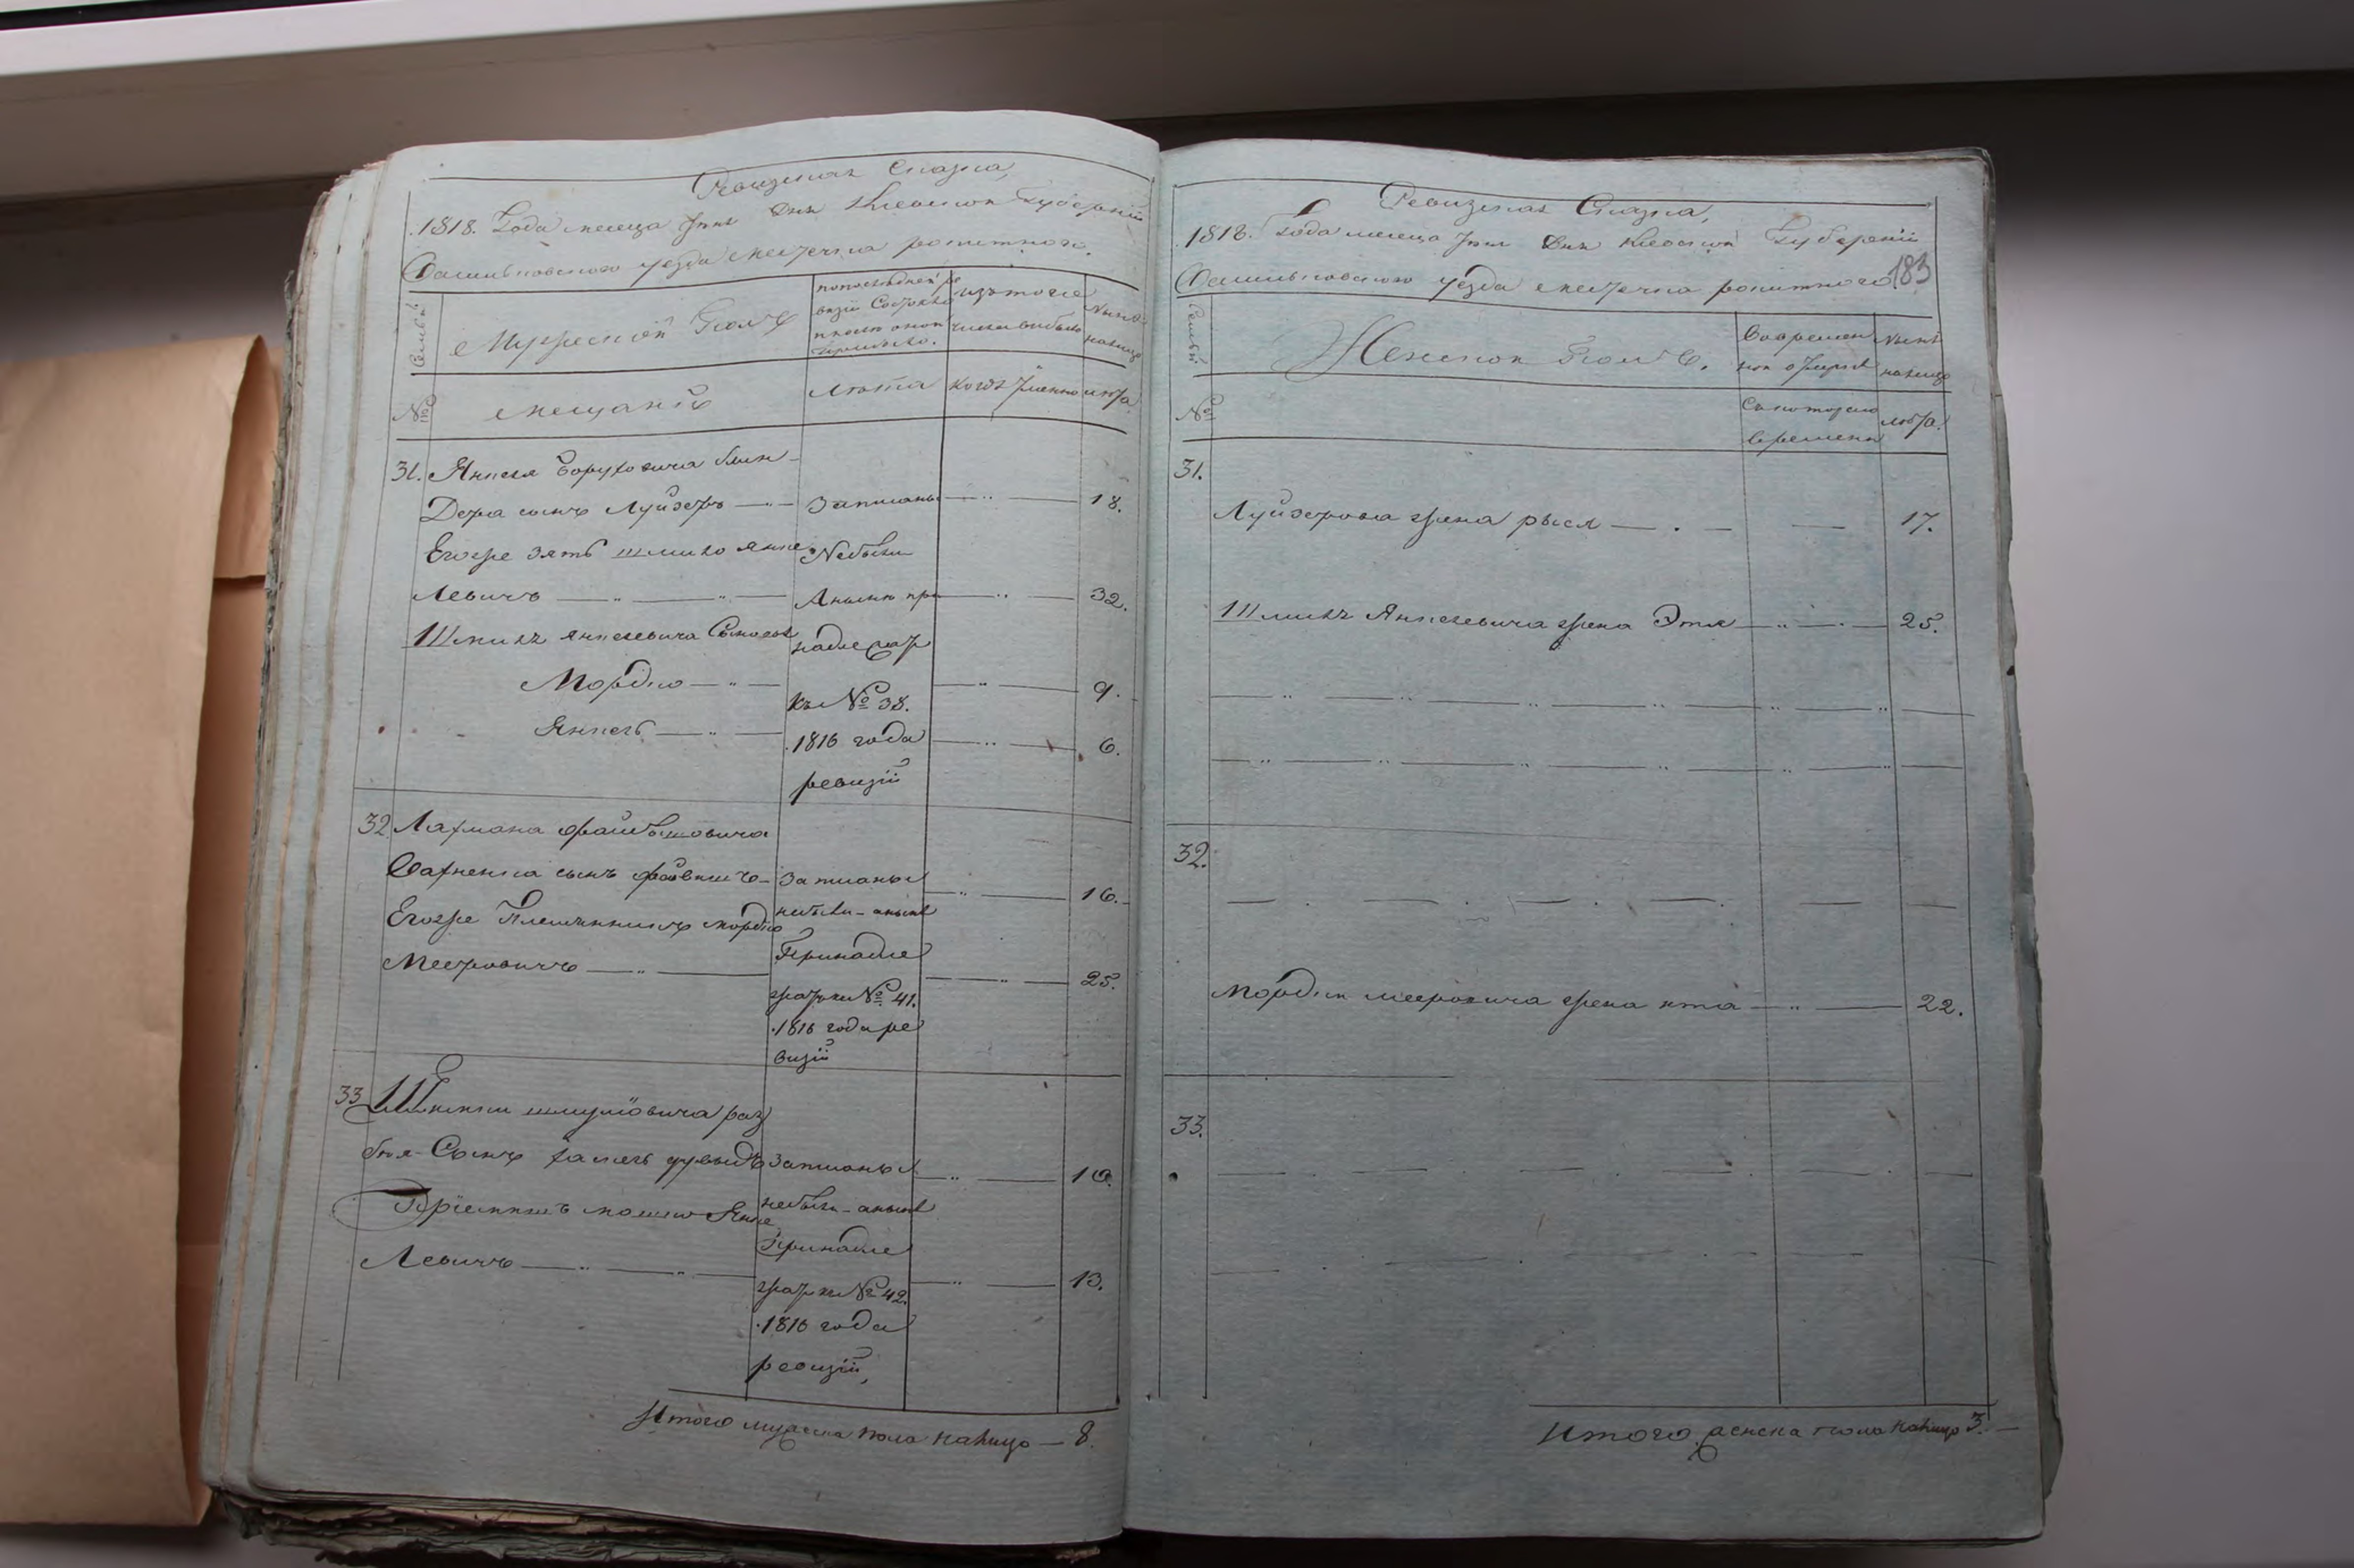 Ревизская Сказка,
1818. Года месяца Iюня Дня Киевской Губернiи
Васильковского уезда местечка рокитного.
Семьи
Мужеской Полъ
попоследней ре
визiи Состояло
и после оной
прибыло.
изъ того
числа выбыло
Ныне
налицо
№
мещанъ
лета
когда Имянно
лета
31. Янкеля Боруховича Бин-
Дера сынъ Луйзеръ
записаны
18.
Егоже зять шлиохо янке
Небыли
левичъ
Аныне при
32.
Шлиохъ янкелевича Сыновья
надлежат
Мордко
къ № 38.
9.
Янкель
1816 года
6.
ревизiи
32. Лахмана файвишовича
Вахненка сынъ файвишъ
записаны
16.
Егоже Племянникъ мордко
небыли - аныне
Мееровичъ
Принадле
25.
жатъ к № 41.
1816 года ре
визiи
33. шмулiовича раз
Сынъ
Записаны
10.
Прiемышъ мошко Янке
небыли - аныне
Левичъ
Принадле
жат к № 42.
13.
1816 года
ревизiи,
Итого мужеска пола налицо — 8.
Ревизская Сказка,
1818. Года месяца Iюня Дня Киевской Губернiи
Васильковского уезда местечка рокитного
183
Семьи
Женской Полъ.
Вовремен
ной отлучке
Ныне
налицо
№
Скотораго
времени
лета.
31.
Луйзерова жена рыся
17.
Шлиохъ Янкелевича жена Этля
25.
32.
Мордки мееровича жена ита
22.
33.
Итого женска пола налицо 3.